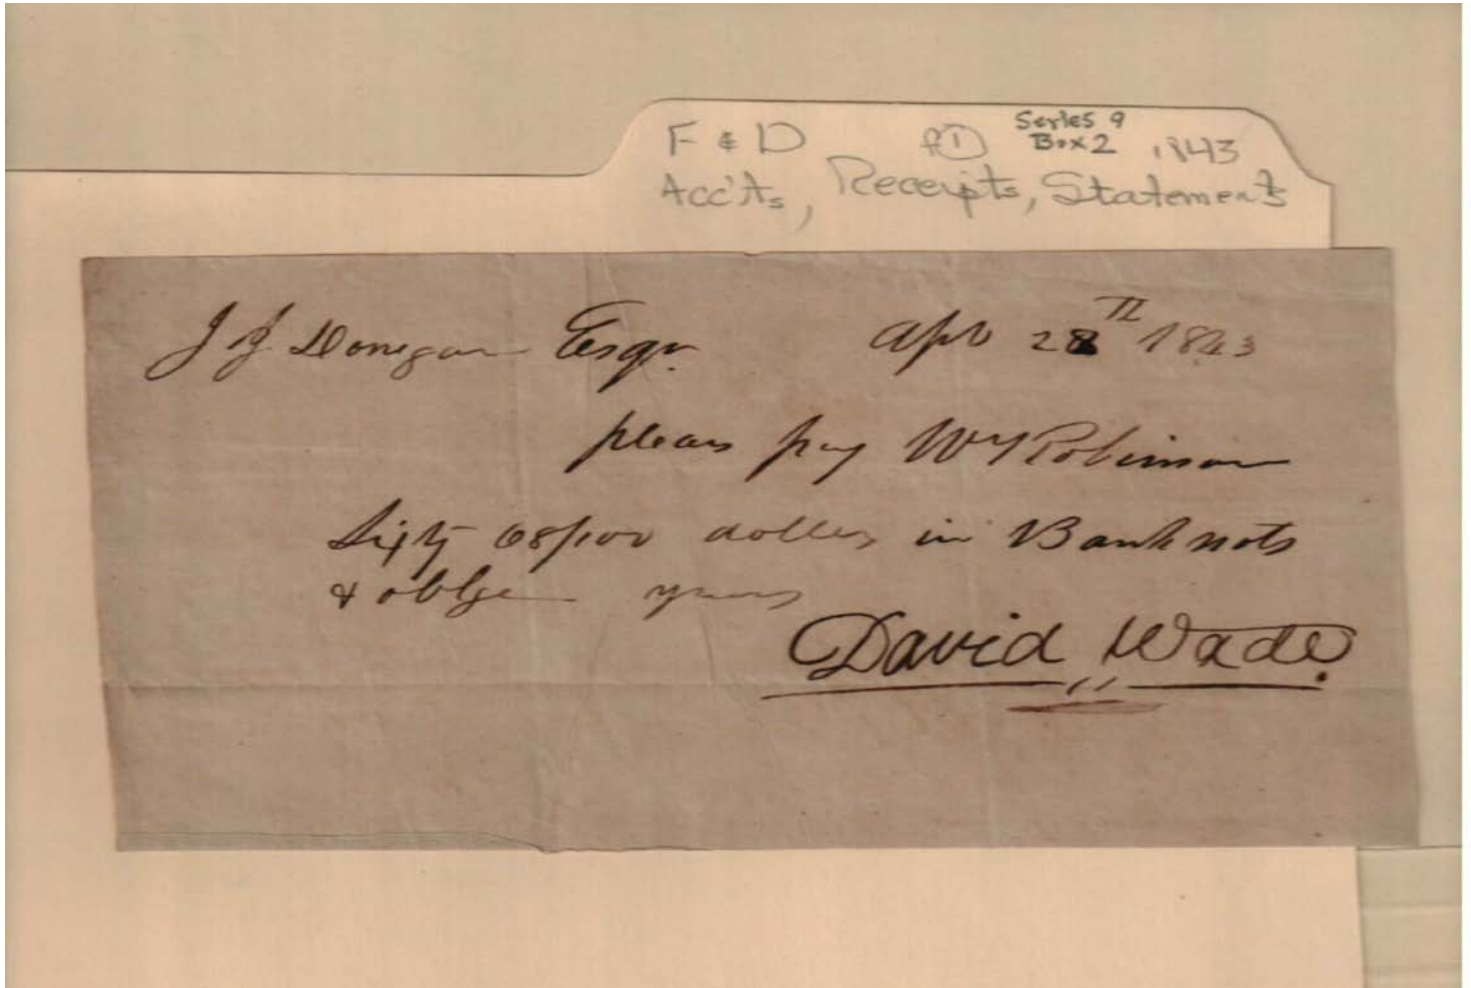 F & D f① Series 9 Box 2 1843
Acc'ts, Receipts, Statements
J J Donegan Esqr. Apl 28th 1843
pleas pay Wm Robinson
Sixty 68/100 dollers in Bank nots
& oblge yours
David Wade.